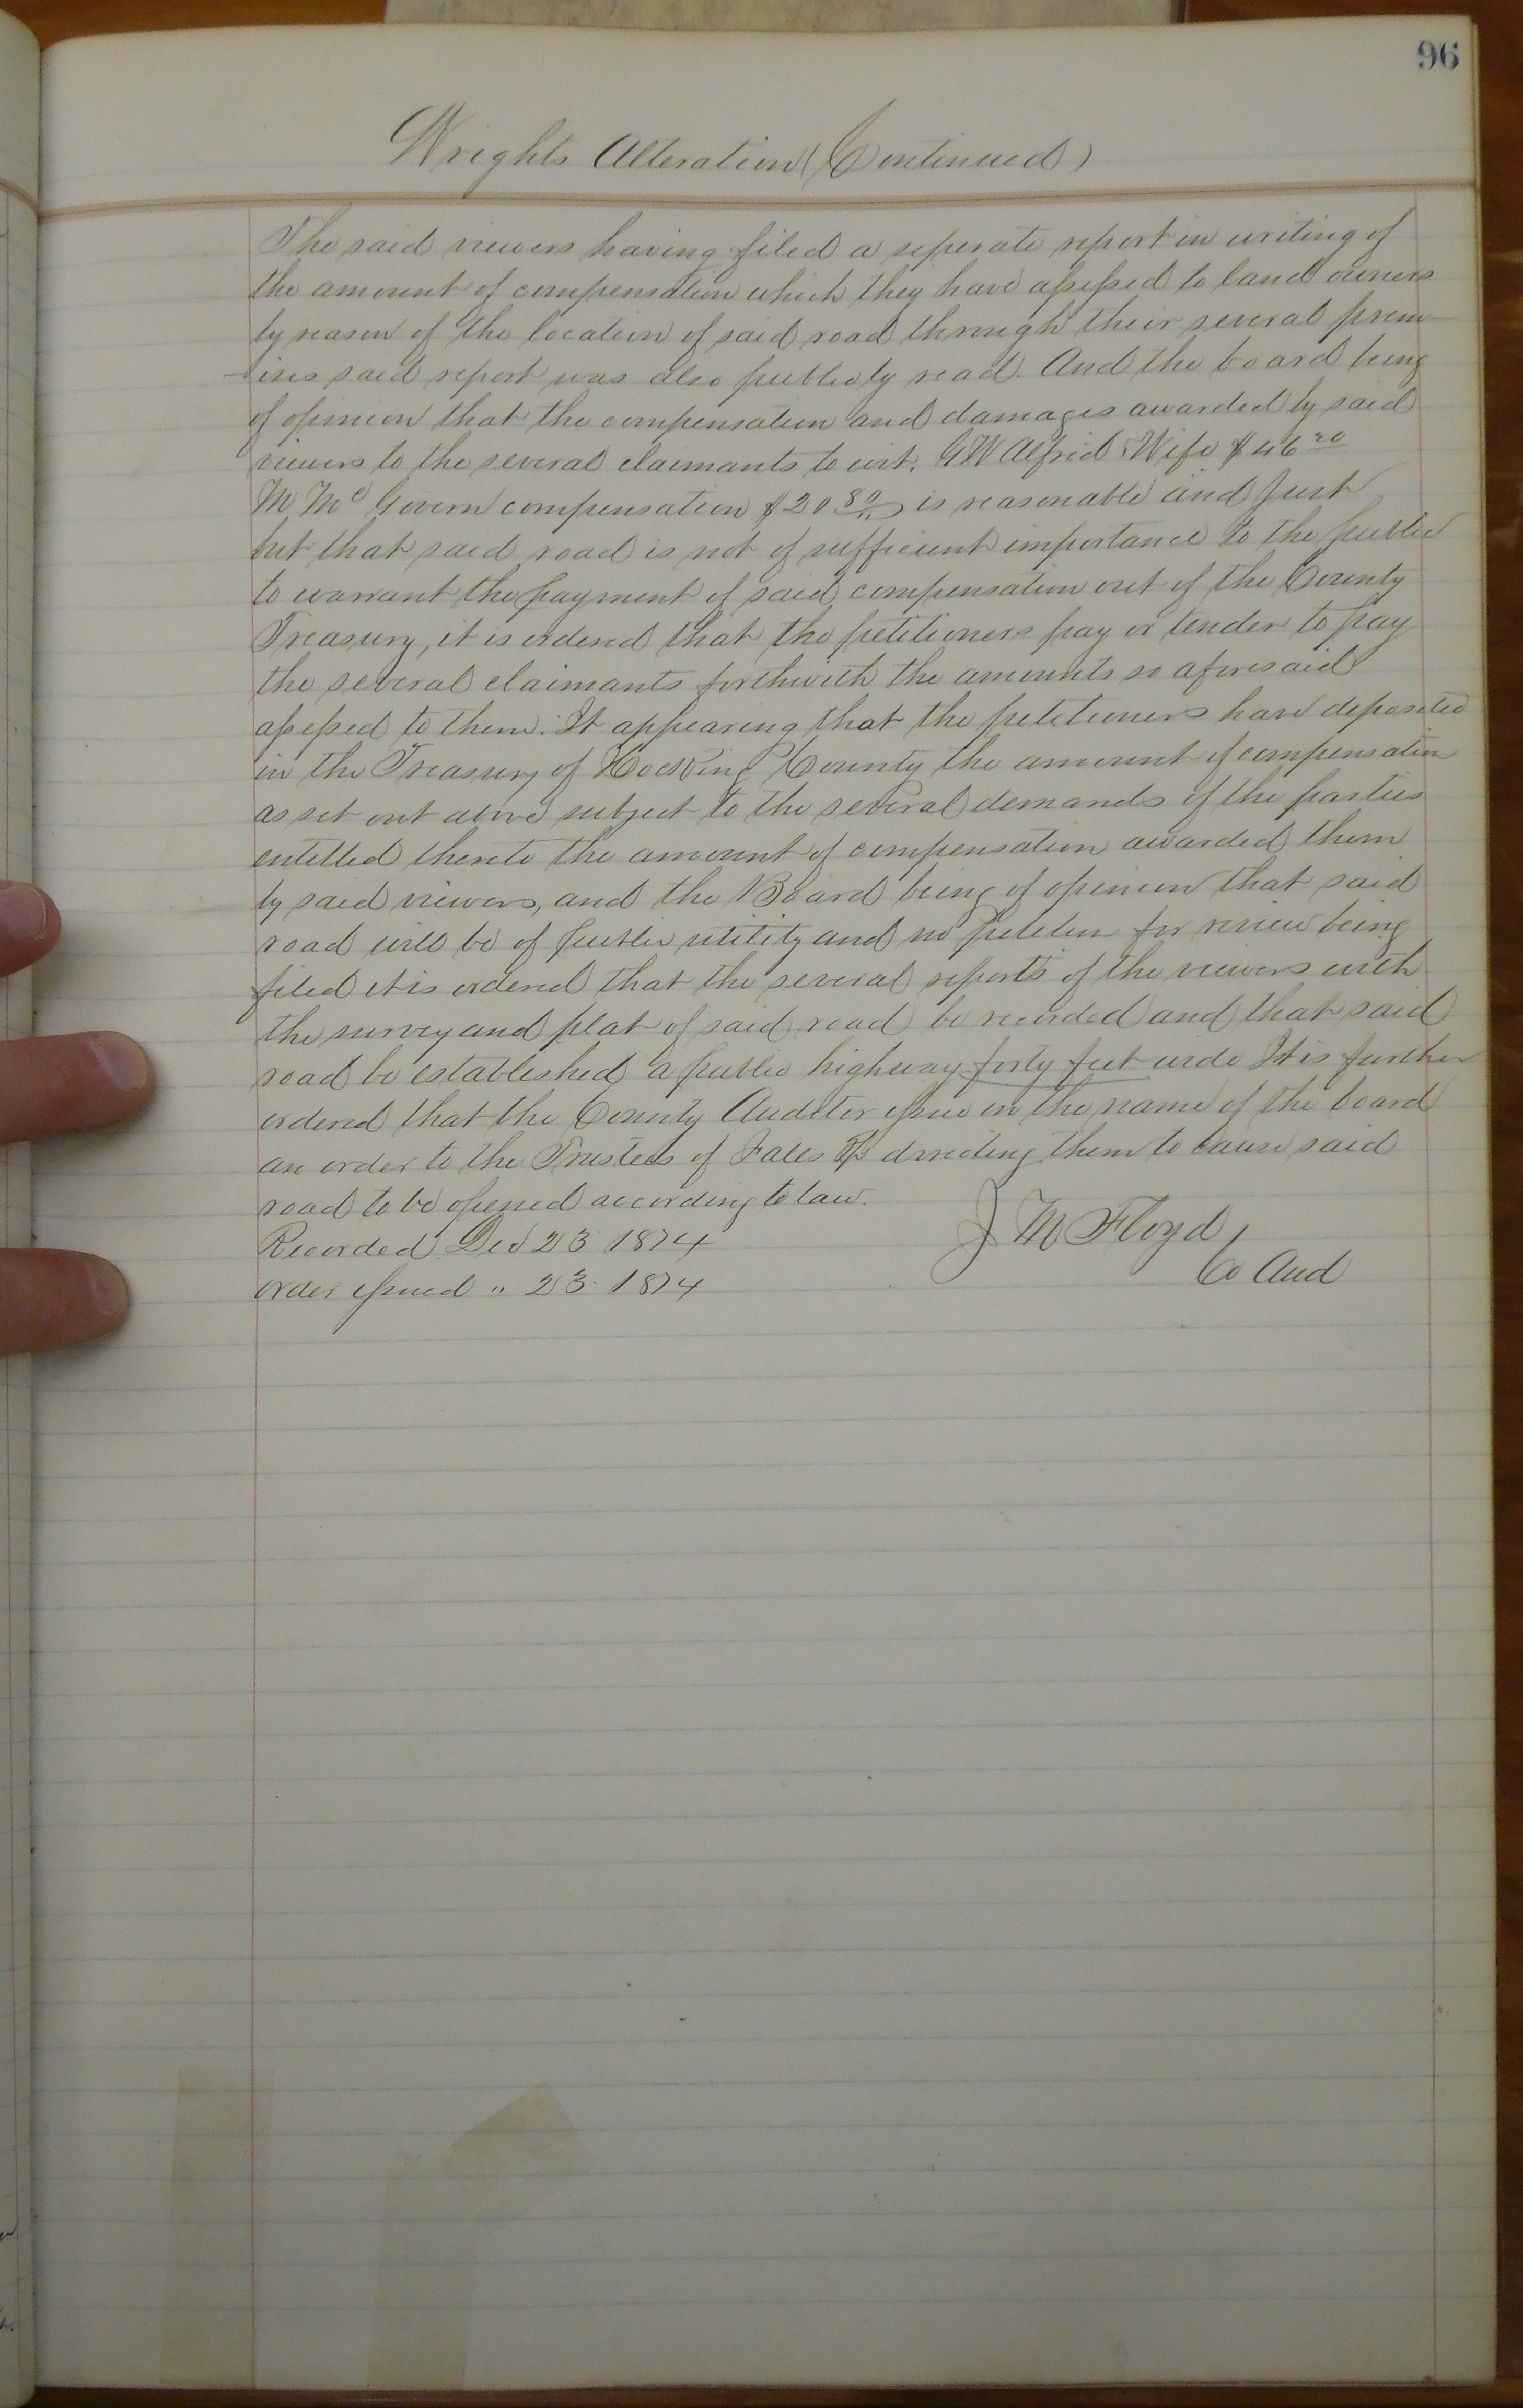 96
Wrights Alteration (Continued)
The said viewers having filed a seperate report in writing of
the amount of compensation which they have assessed to land owners
by reason of the location of said road through their several prem
-ises said report was also publicly read. And the board being
of opinion that the compensation and damages awarded by said
viewers to the several claimants to wit, G W Alfrid & Wife $46 20
M Mc Govern compensation $20 80 is reasonable and Just
but that said road is not of sufficient importance to the public
to warrant the payment of said compensation out of the County
Treasury, it is ordered that the petitioners pay or tender to pay
the several claimants forthwith the amounts so aforesaid
assessed to them. It appearing that the petitioners have deposited
in the Treasury of Hocking County the amount of compensation
as set out above subject to the several demands of the parties
entitled thereto the amount of compensation awarded them
by said viewers, and the Board being of opinion that said
road will be of public utility and no petition for review being
filed it is ordered that the several reports of the viewers with
the survey and plat of said road be recorded and that said
road be established a public highway forty feet wide It is further
ordered that the County Auditor issue in the name of the board
an order to the Trustees of Falls Tp directing them to cause said
road to be opened according to law.
Recorded Dec 23 1874
J M Floyd,
Co Aud
order issued " 23 1874